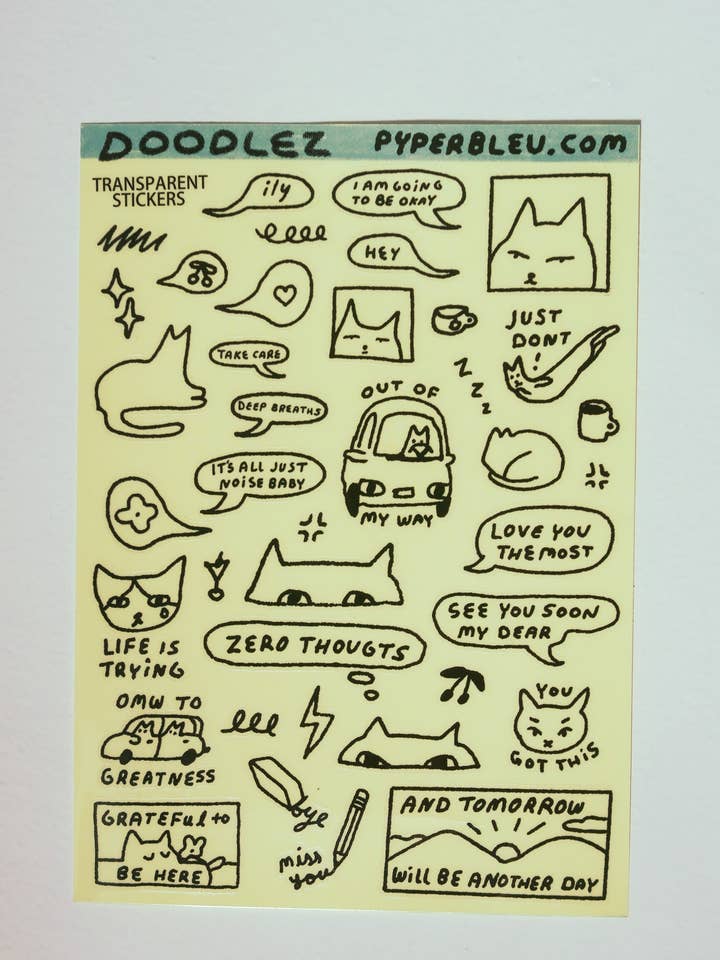 DOODLEZ PYPERBLEU.COM
TRANSPARENT
STICKERS
ily
I AM GOING
TO BE OKAY
HEY
JUST
DONT
!
TAKE CARE
Z
Z
Z
DEEP BREATHS
OUT OF
MY WAY
IT'S ALL JUST
NOISE BABY
LOVE YOU
THE MOST
SEE YOU SOON
MY DEAR
LIFE IS
TRYING
ZERO THOUGTS
OMW TO
GREATNESS
YOU
GOT THIS
bye
miss
you
GRATEFUL to
BE HERE
AND TOMORROW
WILL BE ANOTHER DAY